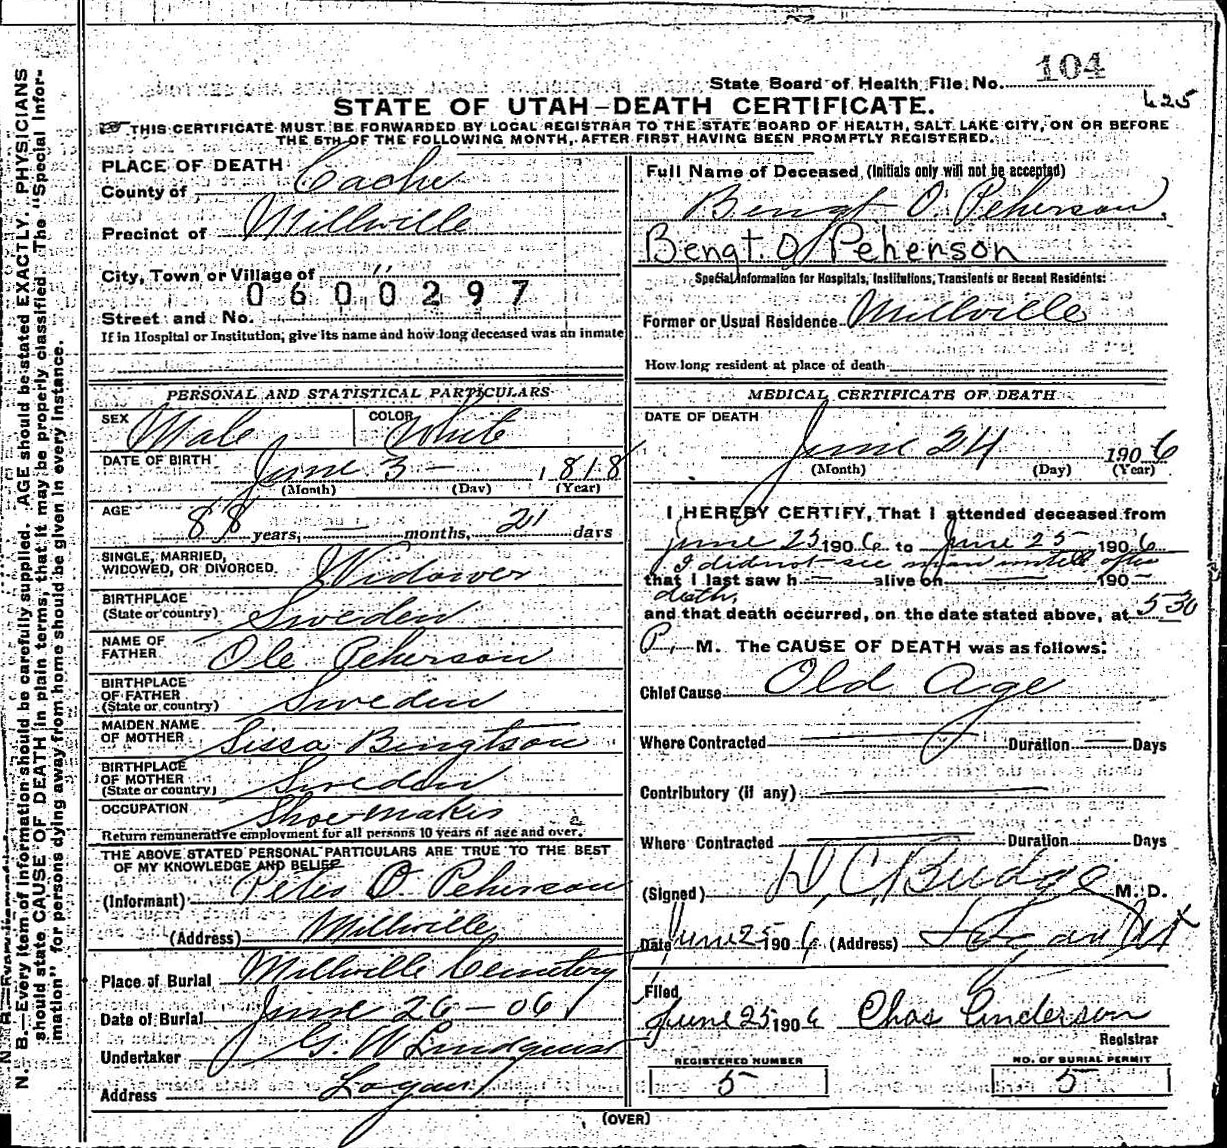 State Board of Health File No. 104
625
STATE OF UTAH—DEATH CERTIFICATE.
THIS CERTIFICATE MUST BE FORWARDED BY LOCAL REGISTRAR TO THE STATE BOARD OF HEALTH, SALT LAKE CITY, ON OR BEFORE
THE 5TH OF THE FOLLOWING MONTH, AFTER FIRST HAVING BEEN PROMPTLY REGISTERED.
PLACE OF DEATH
County of Cache
Precinct of Millville
City, Town or Village of "
0600297
Street and No.
If in Hospital or Institution, give its name and how long deceased was an inmate
PERSONAL AND STATISTICAL PARTICULARS
SEX Male COLOR White
DATE OF BIRTH June 3 – 1818
(Month) (Day) (Year)
AGE 88 years, — months, 21 days
SINGLE, MARRIED,
WIDOWED, OR DIVORCED. Widower
BIRTHPLACE
(State or country) Sweden
NAME OF
FATHER Ole Peherson
BIRTHPLACE
OF FATHER
(State or country) Sweden
MAIDEN NAME
OF MOTHER Sissa Bengtson
BIRTHPLACE
OF MOTHER
(State or country) Sweden
OCCUPATION Shoemaker
Return remunerative employment for all persons 10 years of age and over.
THE ABOVE STATED PERSONAL PARTICULARS ARE TRUE TO THE BEST
OF MY KNOWLEDGE AND BELIEF
(Informant) Peter O. Peherson
(Address) Millville
Place of Burial Millville Cemetery
Date of Burial June 26 – 06
Undertaker G. W Lindquist
Address Logan
Full Name of Deceased (Initials only will not be accepted)
Bengt O. Peherson.
Bengt. O/ Pehenson
Special Information for Hospitals, Institutions, Transients or Recent Residents:
Former or Usual Residence Millville
How long resident at place of death
MEDICAL CERTIFICATE OF DEATH
DATE OF DEATH
June 24 1906
(Month) (Day) (Year)
I HEREBY CERTIFY, That I attended deceased from
June 25 1906 to June 25 1906
I did not see man untill after
that I last saw h — alive on — 190–
death.
and that death occurred, on the date stated above, at 530
P. M. The CAUSE OF DEATH was as follows:
Chief Cause Old Age
Where Contracted — Duration — Days
Contributory (if any)
Where Contracted — Duration — Days
(Signed) D. C. Budge M. D.
Date June 25 1906 (Address) Logan Ut
Filed
June 25 1906 Chas Anderson
Registrar
REGISTERED NUMBER
5
NO. OF BURIAL PERMIT
5
(OVER)
N. B.—Every item of information should be carefully supplied. AGE should be stated EXACTLY. PHYSICIANS
should state CAUSE OF DEATH in plain terms, that it may be properly classified. The "Special Infor-
mation" for persons dying away from home should be given in every instance.